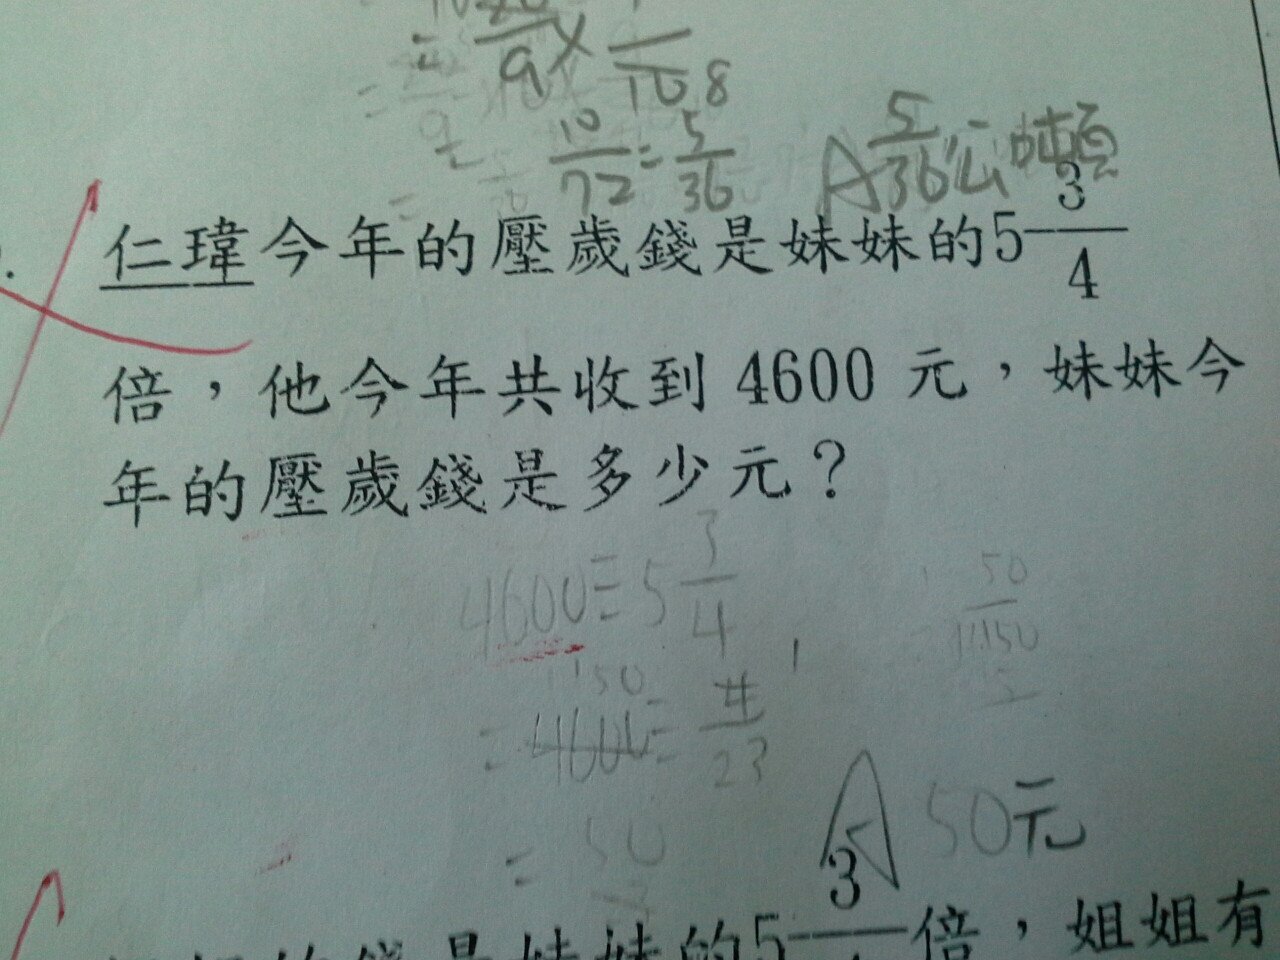 9 × 10 8
10/72 = 5/36 A 5/36 公噸
仁瑋今年的壓歲錢是妹妹的5 3/4
倍，他今年共收到 4600 元，妹妹今
年的壓歲錢是多少元？
4600 ÷ 5 3/4
50
= 4600 ÷ 4/23
= 50
A 50元
的錢是妹妹的5 3 倍，姐姐有